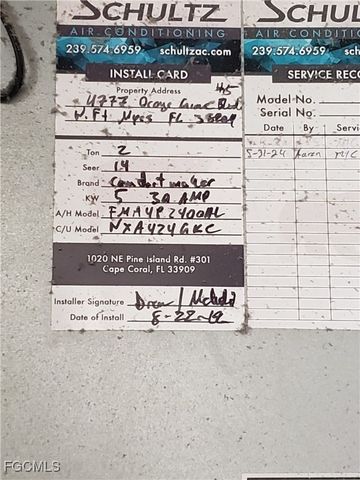 SCHULTZ
AIR CONDITIONING
239.574.6959 schultzac.com
INSTALL CARD
Property Address #5
4772 Orange Grove Blvd
N. Ft Myers FL
Ton 2
Seer 14
Brand comfortmaker
KW 5 30 AMP
A/H Model FMA4P2400AL
C/U Model NXA424GKC
1020 NE Pine Island Rd. #301
Cape Coral, FL 33909
Installer Signature Drew /
Date of Install 8-22-19
SCHUL
AIR CONDITI
239.574.6959 sc
SERVICE RECO
Model No.
Serial No.
Date By Servic
5-21-24 Karen M/C
FGCMLS